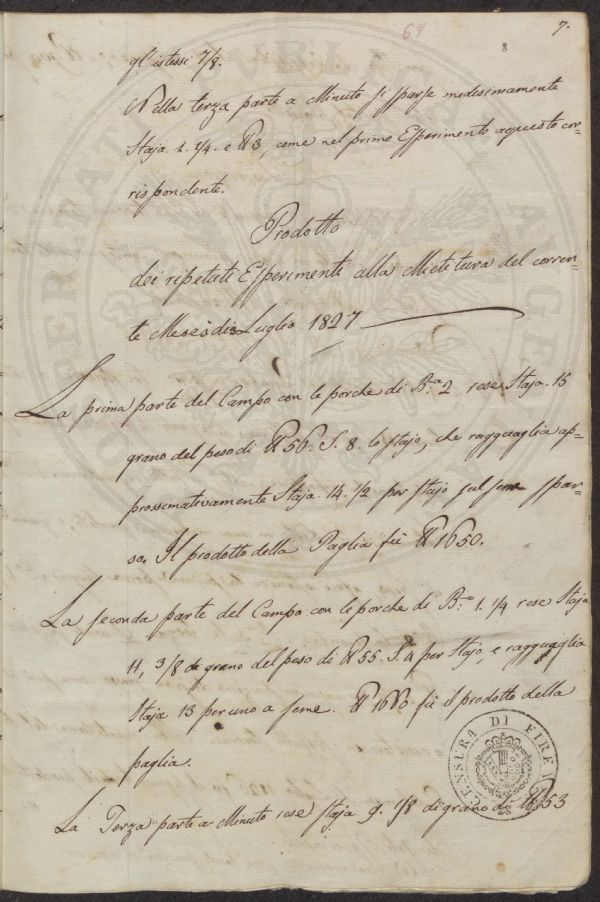 67
7.
8
gl'istessi 7/8.
Nella terza parte a Minuto si sparse medesimamente
Staja 1. 1/4. e ℔ 3, come nel primo Esperimento a questo cor=
rispondente.
Prodotto
dei ripetuti Esperimenti alla Mietitura del corren=
te Mese di Luglio 1827
La prima parte del Campo con le porche di B.a 2 rese Staja. 15
grano del peso di ℔ 56. S. 8. lo stajo, che ragguaglia ap=
prossimativamente Staja 14. 1/2 per stajo sul seme spar=
so. Il prodotto della Paglia fù ℔ 1650.
La seconda parte del Campo con le porche di B.a 1. 1/4 rese Staja
11, 3/8 di grano del peso di ℔ 55. S. 4 per Stajo, e ragguaglia
Staja 13 per uno a seme. ℔ 1660 fù il prodotto della
paglia.
La Terza parte a Minuto rese Staja 9. 1/8 di grano di ℔ 53
CENSURA DI FIRENZE